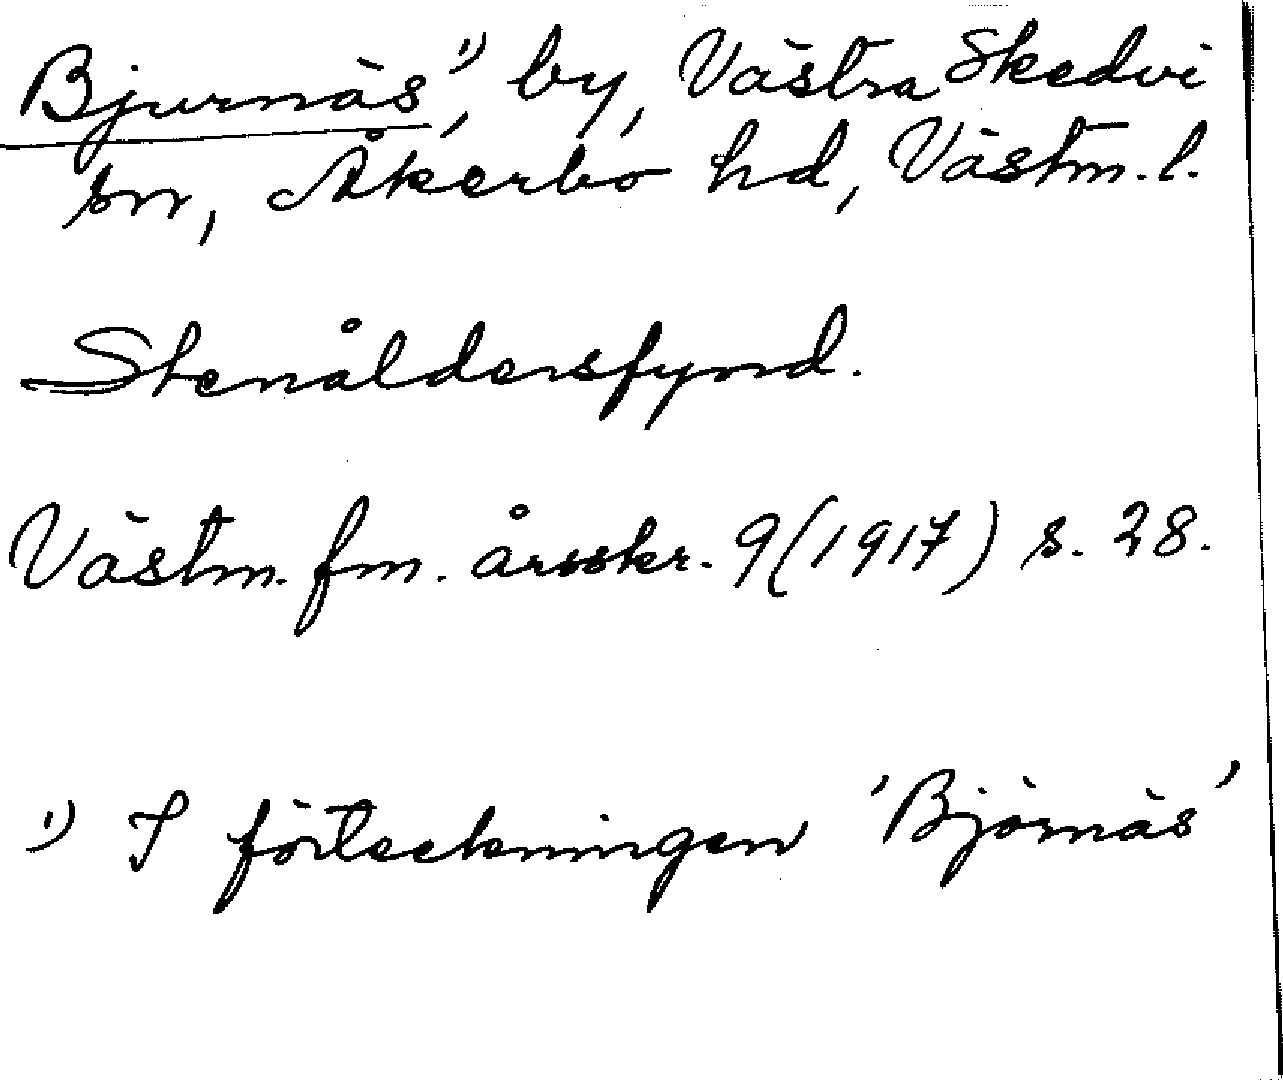 Bjurnäs¹⁾, by, Västra Skedvi
sn, Åkerbo hd, Västm. l.
Stenåldersfynd.
Västm. fm. årsskr. 9 (1917) s. 28.
¹⁾ I förteckningen 'Björnäs'